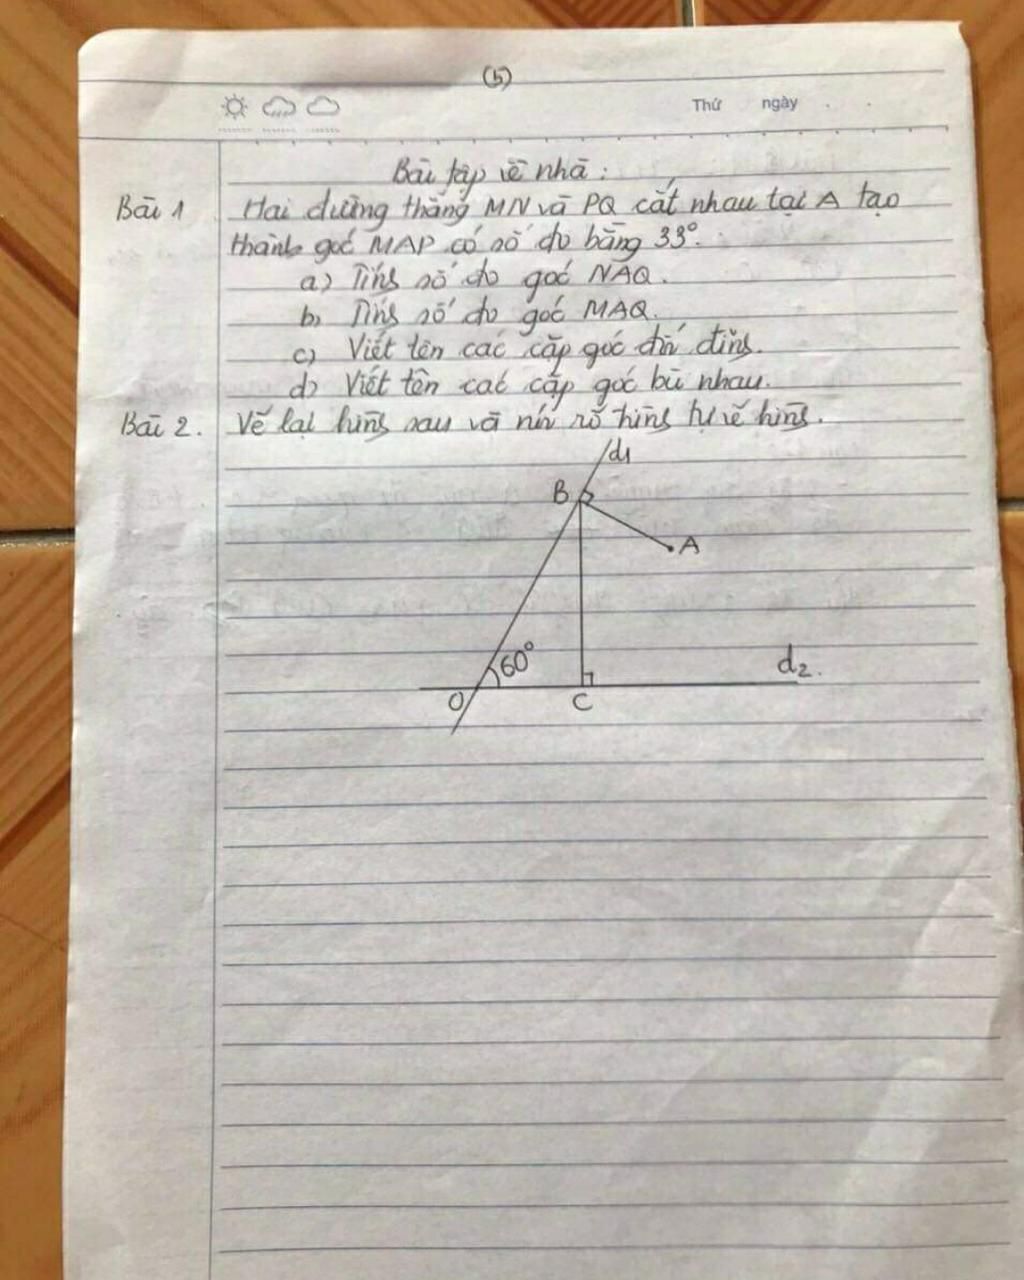 (5)
Thứ ngày
Bài tập về nhà :
Bài 1 Hai đường thẳng MN và PQ cắt nhau tại A tạo
thành góc MAP có số đo bằng 33°.
a) Tính số đo góc NAQ.
b) Tính số đo góc MAQ.
c) Viết tên các cặp góc đối đỉnh.
d) Viết tên các cặp góc bù nhau.
Bài 2. Vẽ lại hình sau và nói rõ trình tự vẽ hình.
d1
B
A
60°
d2.
O C